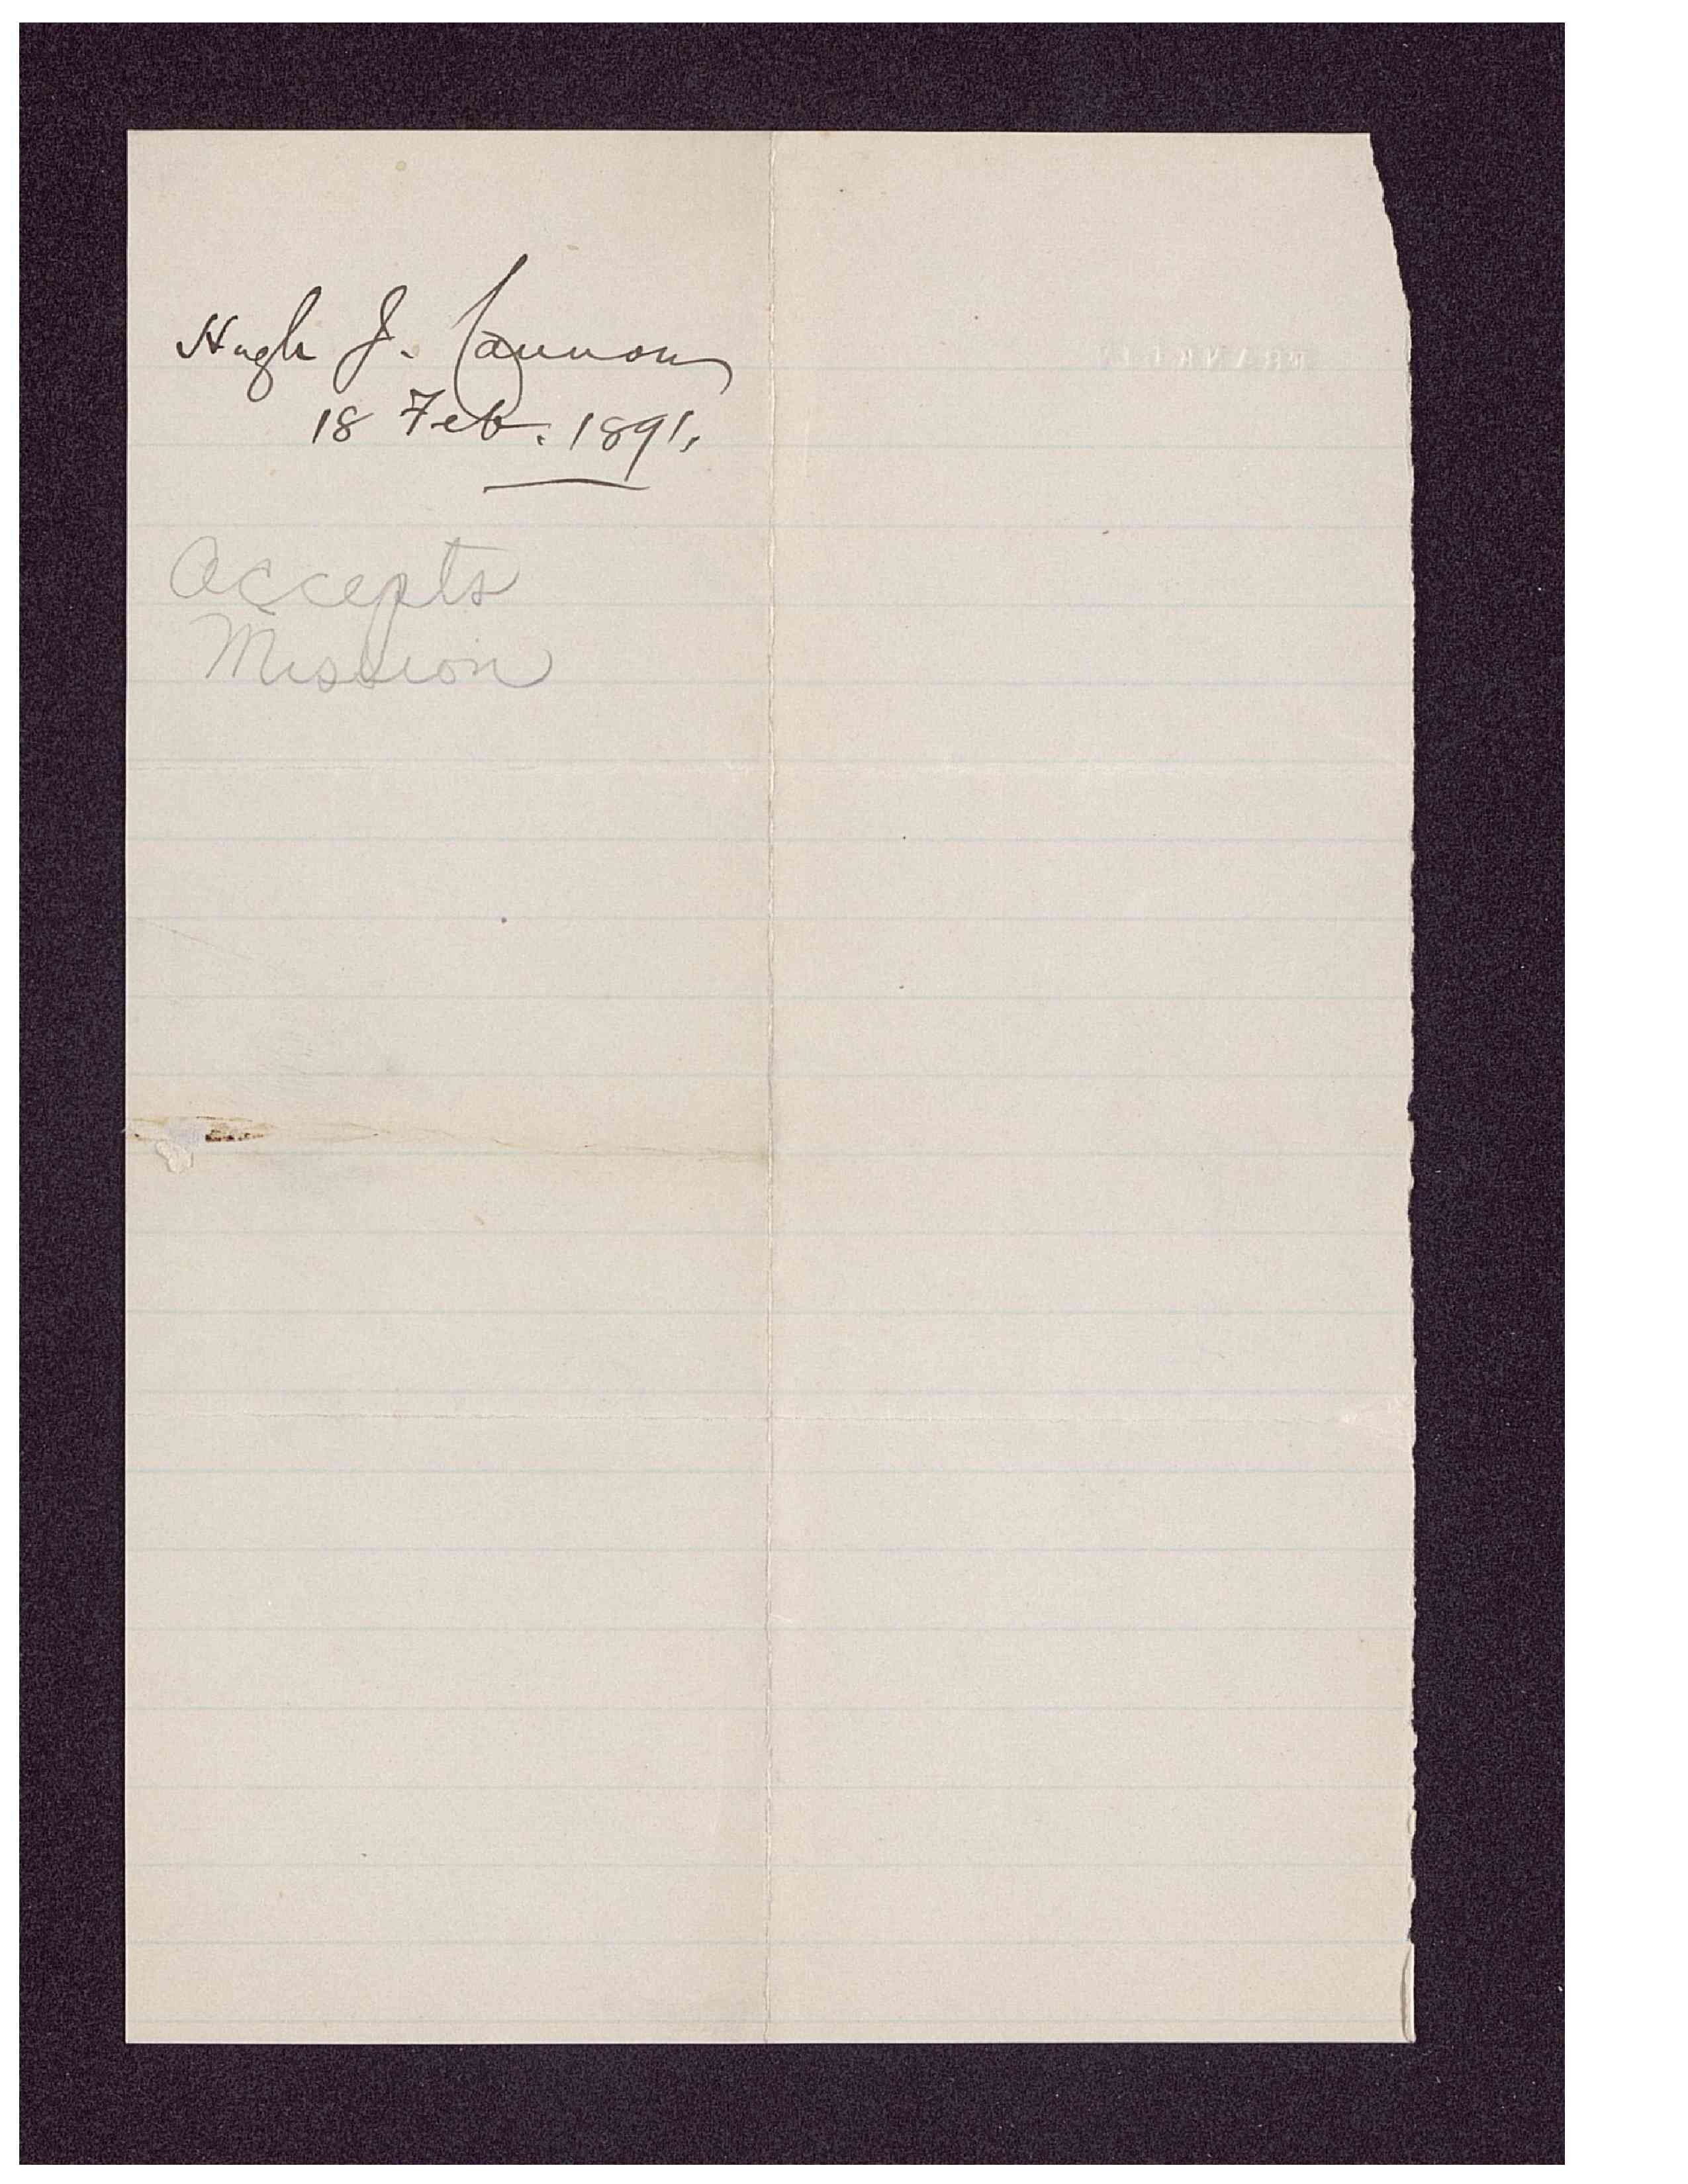 Hugh J. Cannon
18 Feb. 1891.
Accepts
Mission
FRANKLIN